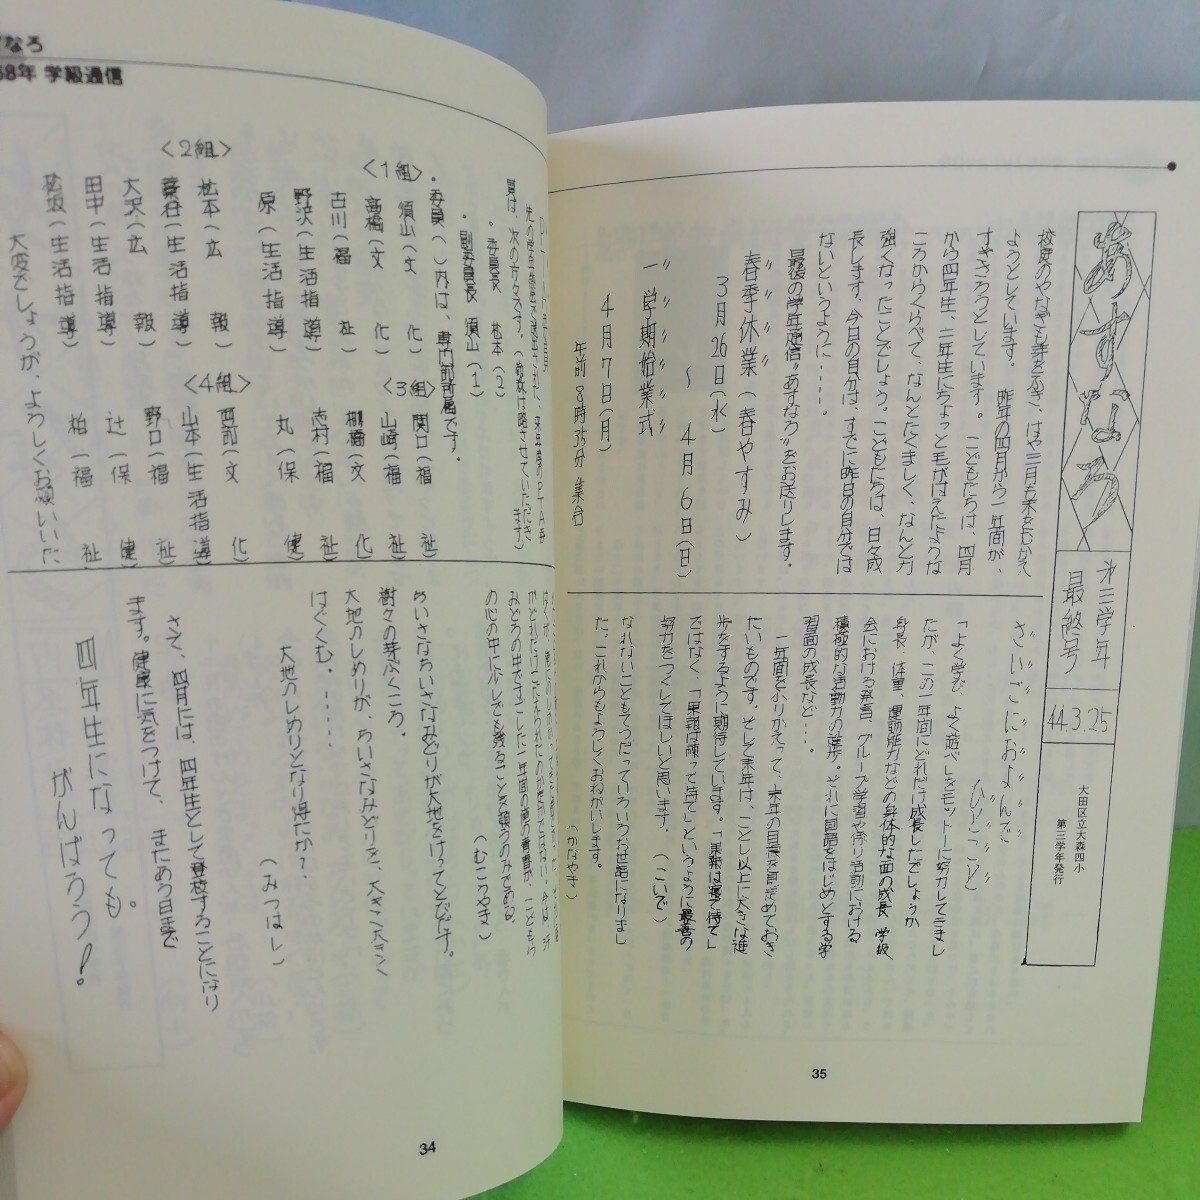 あすなろ
第三学年
最終号
44.3.25
大田区立大森四小
第三学年発行
校庭のやなぎも芽をふき、はや三月も末をむかえ
ようとしています。 昨年の四月から一年間が、
すぎさろうとしています。 こどもたちは、四月
から四年生、二年生にちょっと毛がはえたような
ころからくらべて、なんとたくましく、なんと力
強くなったことでしょう。こどもたちは、日々成
長します。今日の自分は、すでに昨日の自分では
ないというように・・・・。
最後の学年通信"あすなろ"をお送りします。
春季休業(春やすみ)
3月26日(水)
〜 4月6日(日)
一学期始業式
4月7日(月)
午前8時35分 集合
さいごにおよんで
ひとこと
「よく学び、よく遊べ」をモットーに努力してきまし
たが、この一年間にどれだけ成長したでしょうか
身長、体重、運動能力などの身体的な面の成長 学級
会における発言、グループ学習や係り活動における
積極的な活動力の進歩。それに国語をはじめとする学
習面の成長など・・・。
一年間をふりかえって、来年の目標を見さだめておき
たいものです。そして来年は、ことし以上に大きな進
歩をするように期待しています。「果報は寝て待て」
ではなく、「果報は練って待て」というように最善の
努力をつくしてほしいと思います。 (こいで)
なれないこともてつだっていろいろお世話になりまし
た。これからもようしくおねがいします。
(かなやき)
35
なろ
68年 学級通信
員は、次の方々です。(敬称は略させていただき
ます。)
・委員長 松本(2)
・副委員長 須山(1)
・委員( )内は、専門部所属です。
<1組>
須山(文 化)
高橋(文 化)
古川(福 祉)
野沢(生活指導)
原(生活指導)
<2組>
松本(広 報)
蓼谷(生活指導)
大沢(広 報)
田中(生活指導)
松坂(生活指導)
<3組>
関口(福 祉)
山崎(福 祉)
棚橋(文 化)
志村(福 祉)
丸(保 健)
<4組>
西前(文 化)
山本(生活指導)
野口(福 祉)
辻(保 健)
柏(福 祉)
大変でしょうが、よろしくお願いいた
みどりの中ですごした一年間の僕の青春が、こどもら
の心の中に少しでも残ることを願うのみである
(むころやま)
ちいさなちいさなみどりが大地をけってとびだす。
樹々の芽ぶくころ。
大地のしめりが、ちいさなみどりを、大きく大きく
はぐくむ。・・・・・・
大地のしめりとなり得たか?
(みつはし)
さて、四月には、四年生として登校することになり
ます。健康に気をつけて、またあう日まで
四年生になっても。
がんばろう!
34